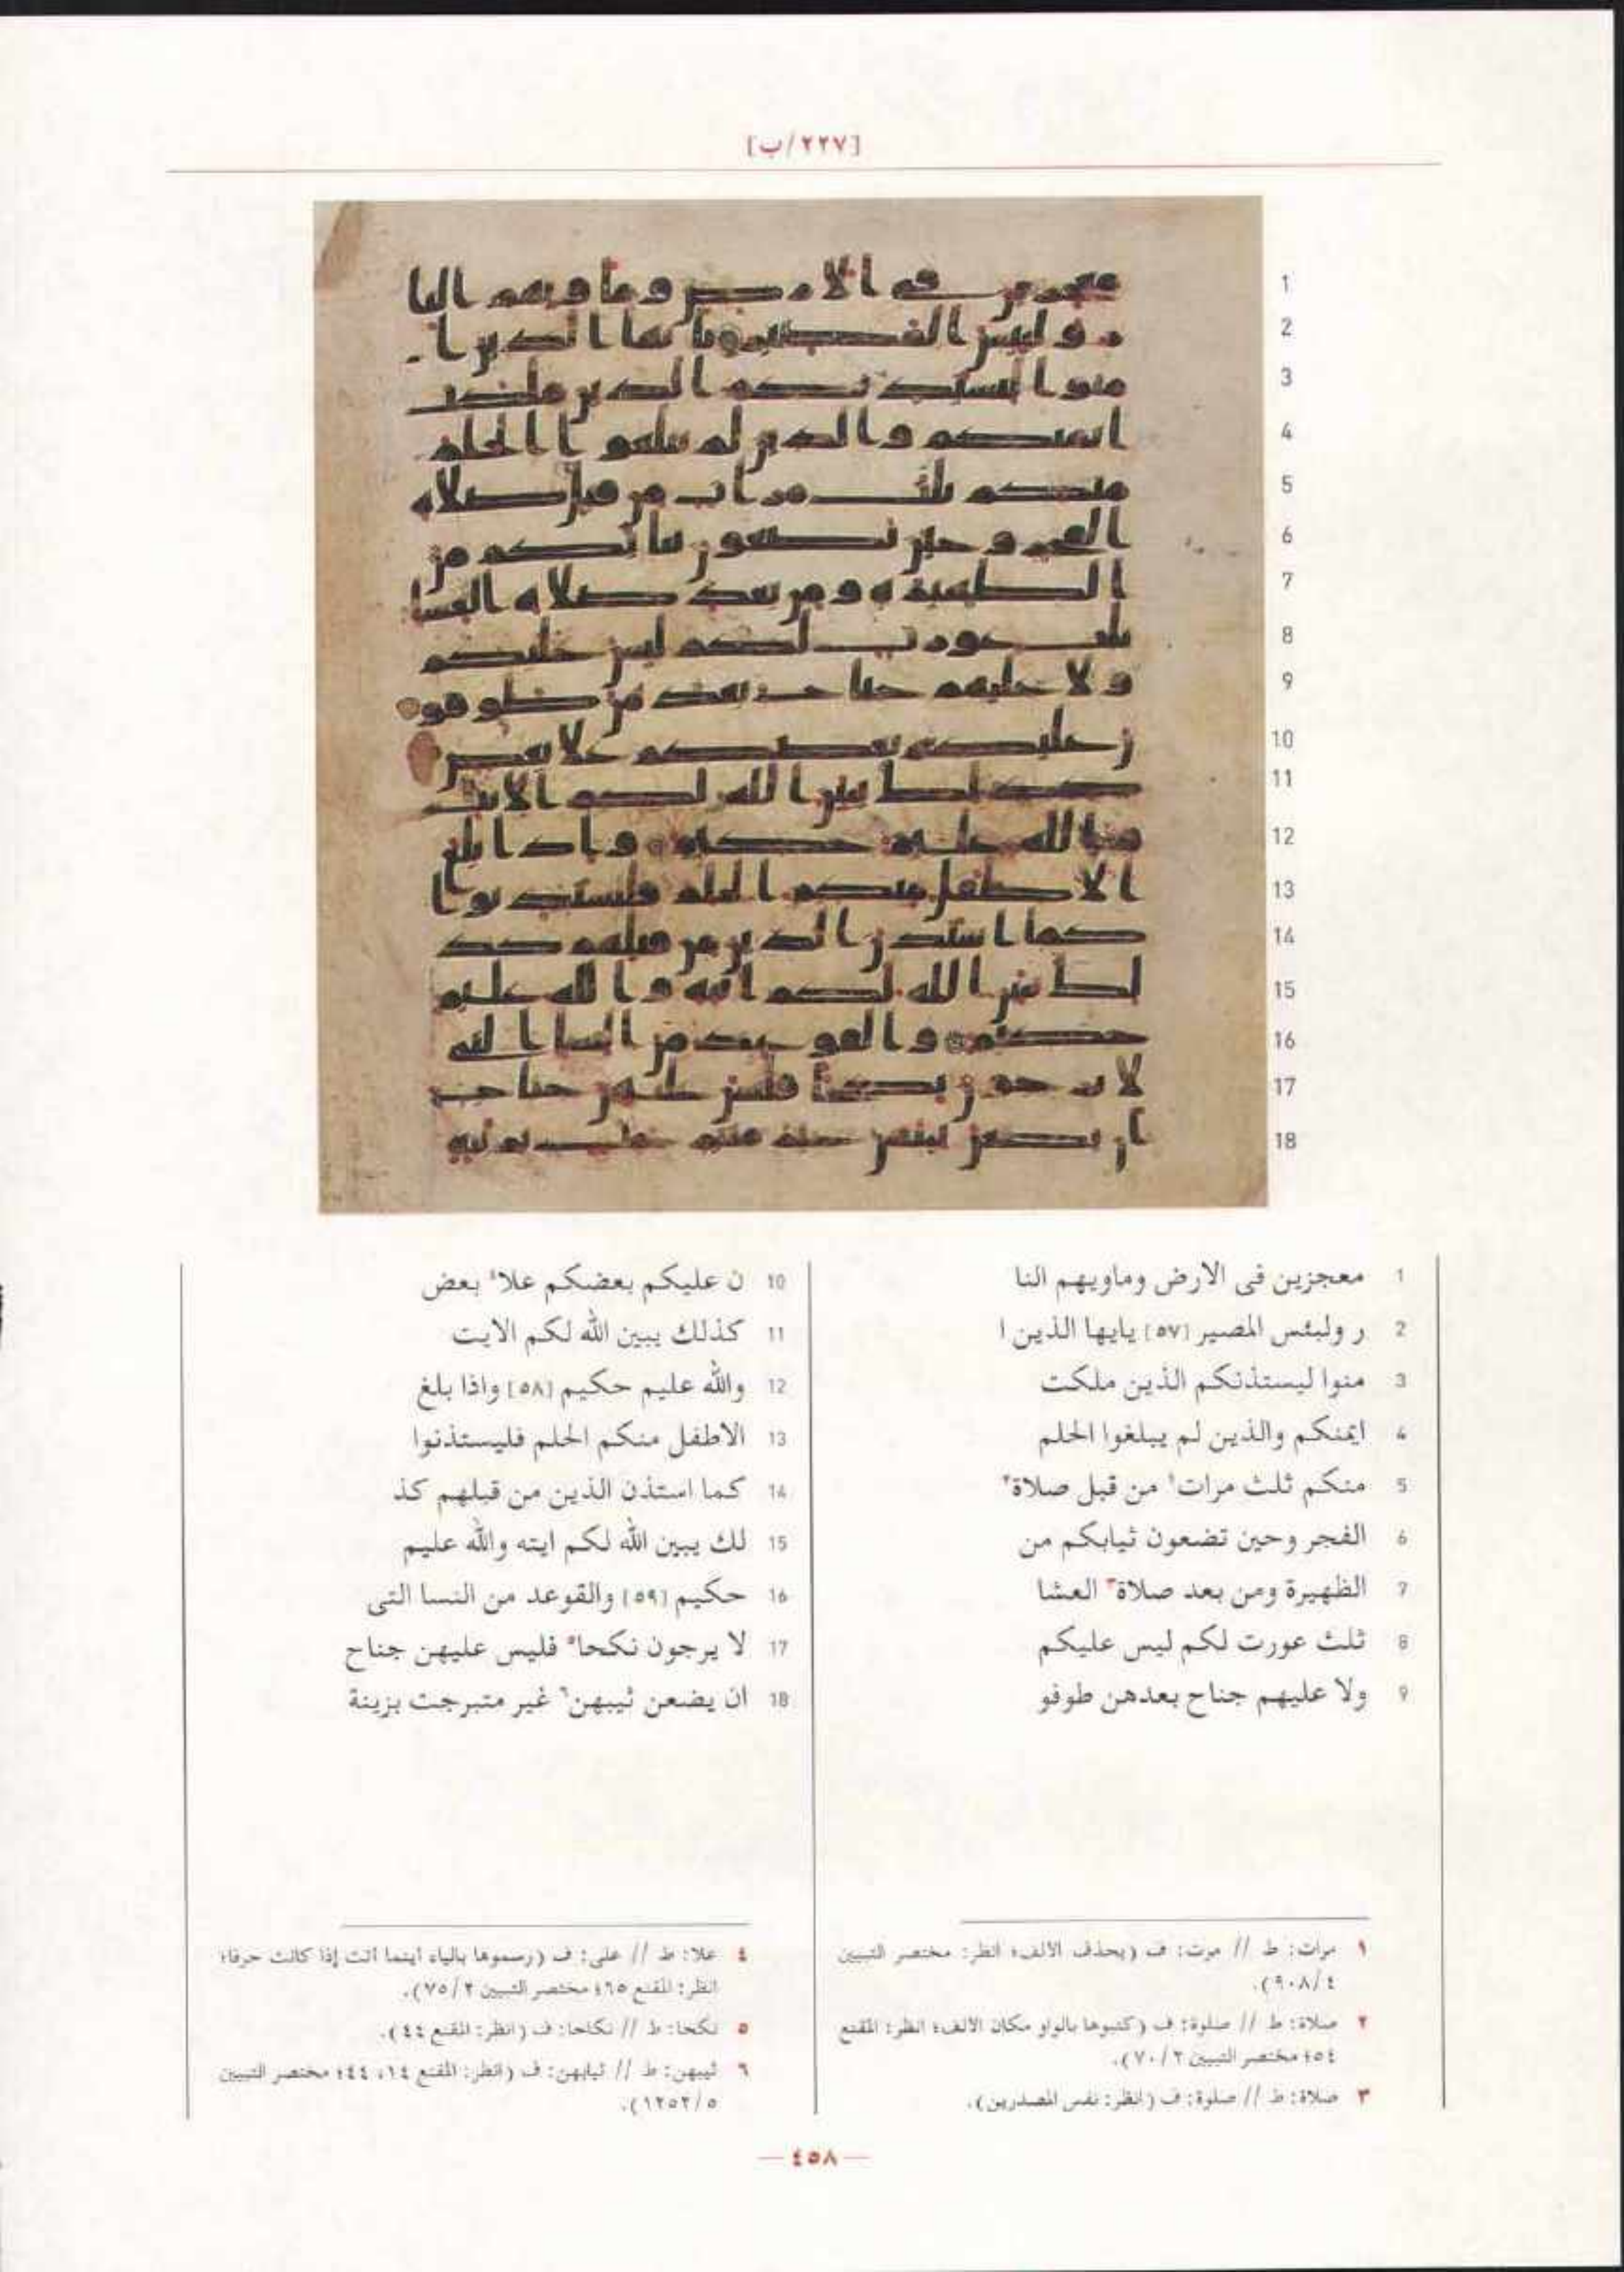 [٢٢٧/ب]
1 معجزين فى الارض وماويهم النا
2 ر ولبئس المصير [٥٧] يايها الذين ا
3 منوا ليستذنكم الذين ملكت
4 ايمنكم والذين لم يبلغوا الحلم
5 منكم ثلث مرات١ من قبل صلاة٢
6 الفجر وحين تضعون ثيابكم من
7 الظهيرة ومن بعد صلاة٣ العشا
8 ثلث عورت لكم ليس عليكم
9 ولا عليهم جناح بعدهن طوفو
10 ن عليكم بعضكم علا٤ بعض
11 كذلك يبين الله لكم الايت
12 والله عليم حكيم [٥٨] واذا بلغ
13 الاطفل منكم الحلم فليستذنوا
14 كما استذن الذين من قبلهم كذ
15 لك يبين الله لكم ايته والله عليم
16 حكيم [٥٩] والقوعد من النسا التى
17 لا يرجون نكحا٥ فليس عليهن جناح
18 ان يضعن ثيبهن٦ غير متبرجت بزينة
١ مرات: ط // مرت: ف (بحذف الالف؛ انظر: مختصر التبيين
٤/٩٠٨).
٢ صلاة: ط // صلوة: ف (كتبوها بالواو مكان الالف؛ انظر: المقنع
٥٤؛ مختصر التبيين ٢/٧٠).
٣ صلاة: ط // صلوة: ف (انظر: نفس المصدرين).
٤ علا: ط // على: ف (رسموها بالياء اينما أتت إذا كانت حرفا؛
انظر: المقنع ٦٥؛ مختصر التبيين ٢/٧٥).
٥ نكحا: ط // نكاحا: ف (انظر: المقنع ٤٤).
٦ ثيبهن: ط // ثيابهن: ف (انظر: المقنع ١٤، ٤٤؛ مختصر التبيين
٥/١٢٥٢).
— ٤٥٨ —